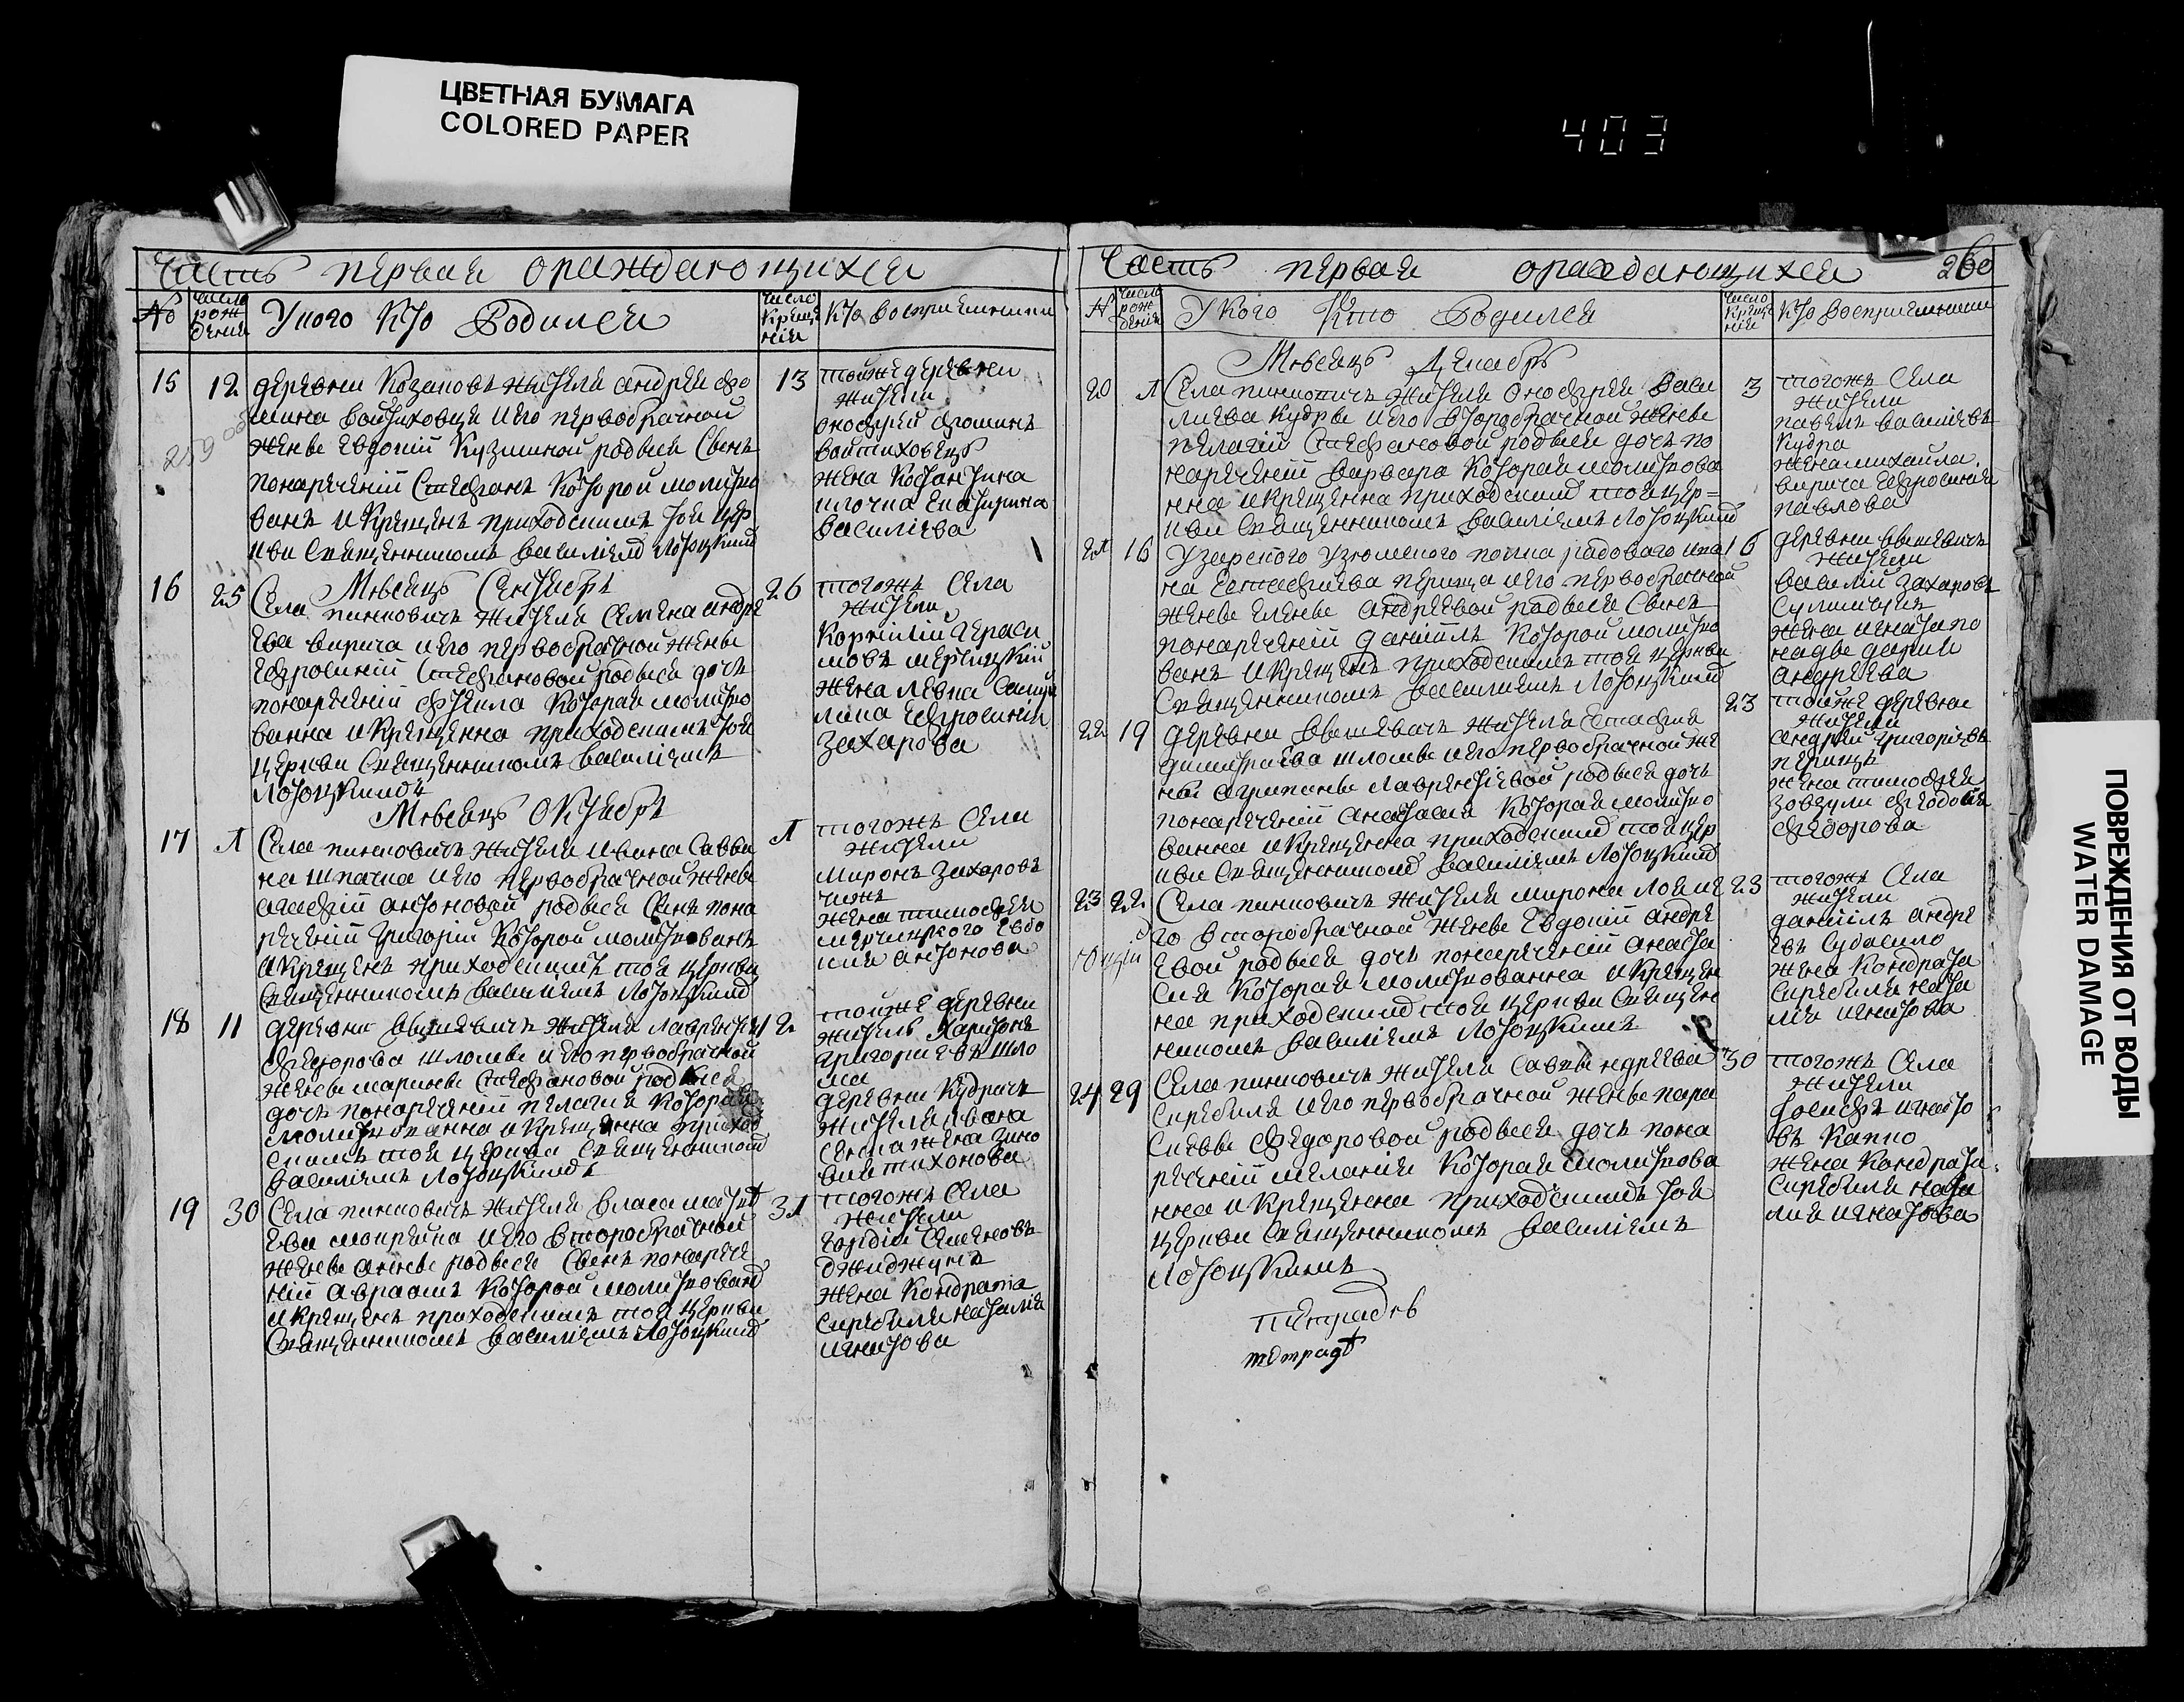 ЦВЕТНАЯ БУМАГА
COLORED PAPER
403
Часть первая ораждающихся
№
число рождения
У кого кто Родился
число крещения
Кто восприемники
15 12 деревни Козаковъ жителя андрея фо
мина Войтиховца и его первобрачной
женѣ Евдокiи Кузминой родился Сынъ
понаречении Стефанъ Которой молитво
ванъ и Крещенъ приходскимъ той цер
кви Священникомъ Василiемъ Лотоцкимъ
13 тойже деревни
жители
онофрий фоминъ
войтиховецъ
жена Костантина
Екатерина
Василиева
259
Мѣсяцъ Сентябръ
16 25 Села пинковичъ жителя Семена андре
ева вирича и его первобрачной женѣ
Ефросинiи Стефановой родися дочъ
понаречении Фекла Которая молитво
ванна и Крещенна приходскимъ той
церкви Священникомъ Василiемъ
Лотоцкимъ
26 тогожъ Села
жители
Корнилiй Гераси
мовъ мерчицкiй
жена левка
Ефросинiя
Захарова
Мѣсяцъ Октябръ
17 1 Села пинковичъ жителя ивана Савви
на шпачка и его первобрачной женѣ
агафiи антоновой родися Синъ пона
речении Григорiй Которой молитвованъ
и Крещенъ приходскимъ той церкви
Священникомъ Василiемъ Лотоцкимъ
1 тогожъ Села
жители
Миронъ Захаровъ
чижъ
жена тимофея
мерчицкого Евдо
кия антонова
18 11 деревни Вышевичъ жителя Лаврентия
Федорова шломы и его первобрачной
женѣ марьянѣ Стефановой родися
дочъ понаречении пелагия Которая
молитвованна и Крещенна приход
скимъ той церкви Священникомъ
Василiемъ Лотоцкимъ
12 тойже деревни
житель Харитонъ
григориевъ шло
ма
деревни Кудричъ
жителя ивана
жена зино
вия тихонова
19 30 Села пинковичъ жителя Власа матфе
ева и его второбрачной
женѣ аннѣ родися Синъ понарече
нiи авраамъ Которой молитвованъ
и Крещенъ приходскимъ той церкви
Священникомъ Василiемъ Лотоцкимъ
31 тогожъ Села
жители
гордiй Семеновъ
джиджукъ
жена Кондрата
Скребиля наталiя
игнатова
Часть первая ораждающихся 260
№
число рождения
У кого Кто Родился
число крещения
Кто восприемники
Мѣсяцъ Декабръ
20 1 Села пинковичъ жителя Онофрея Васи
лиева Кудры и его второбрачной женѣ
пелагiи Стефановой родися дочъ по
наречении варвара Которая молитвова
нна и Крещенна приходскимъ той цер=
кви Священникомъ Василiемъ Лотоцкимъ
3 тогожъ Села
жители
павелъ василиевъ
Кудра
жена михайла
вирича Ефросиния
павлова
21 16 полка радоваго ива
на Естафиева перица и его первобрачной
женѣ еленѣ андреевой родися Синъ
понаречении данiилъ Которой молитво
ванъ и Крещенъ приходскимъ той церкви
Священникомъ Василiемъ Лотоцкимъ
16 деревни вышевичъ
жители
василiй захаровъ
жена игната по
андреева
22 19 деревни Вышевичъ жителя Естафия
димитриева шломы и его первобрачной же
нѣ агрипинѣ Лаврентiевой родися дочъ
понаречении анастасия Которая молитво
ванна и Крещенна приходскимъ той цер
кви Священникомъ Василiемъ Лотоцкимъ
23 тойже деревни
жители
андрей григориевъ
перицъ
жена тимофея
зовзули феодосия
федорова
23 22 Села пинковичъ жителя мирона
второбрачной женѣ Евдокiи андре
евой родися дочъ понаречении анаста
сия Которая молитвованна и Крещен
на приходскимъ той церкви Священ
никомъ Василiемъ Лотоцкимъ
23 тогожъ Села
жители
данiилъ андре
евъ Судасило
жена Кондрата
Скребиля ната
лия игнатова
24 29 Села пинковичъ жителя Саввы
Скребиля и его первобрачной женѣ пара
скевѣ федоровой родися дочъ пона
речении меланiя Которая молитвова
нна и Крещенна приходскимъ той
церкви Священникомъ Василiемъ
Лотоцкимъ
30 тогожъ Села
жители
Iосифъ игнато
въ Капко
жена Кондрата
Скребиля ната
лия игнатова
ПОВРЕЖДЕНИЯ ОТ ВОДЫ
WATER DAMAGE